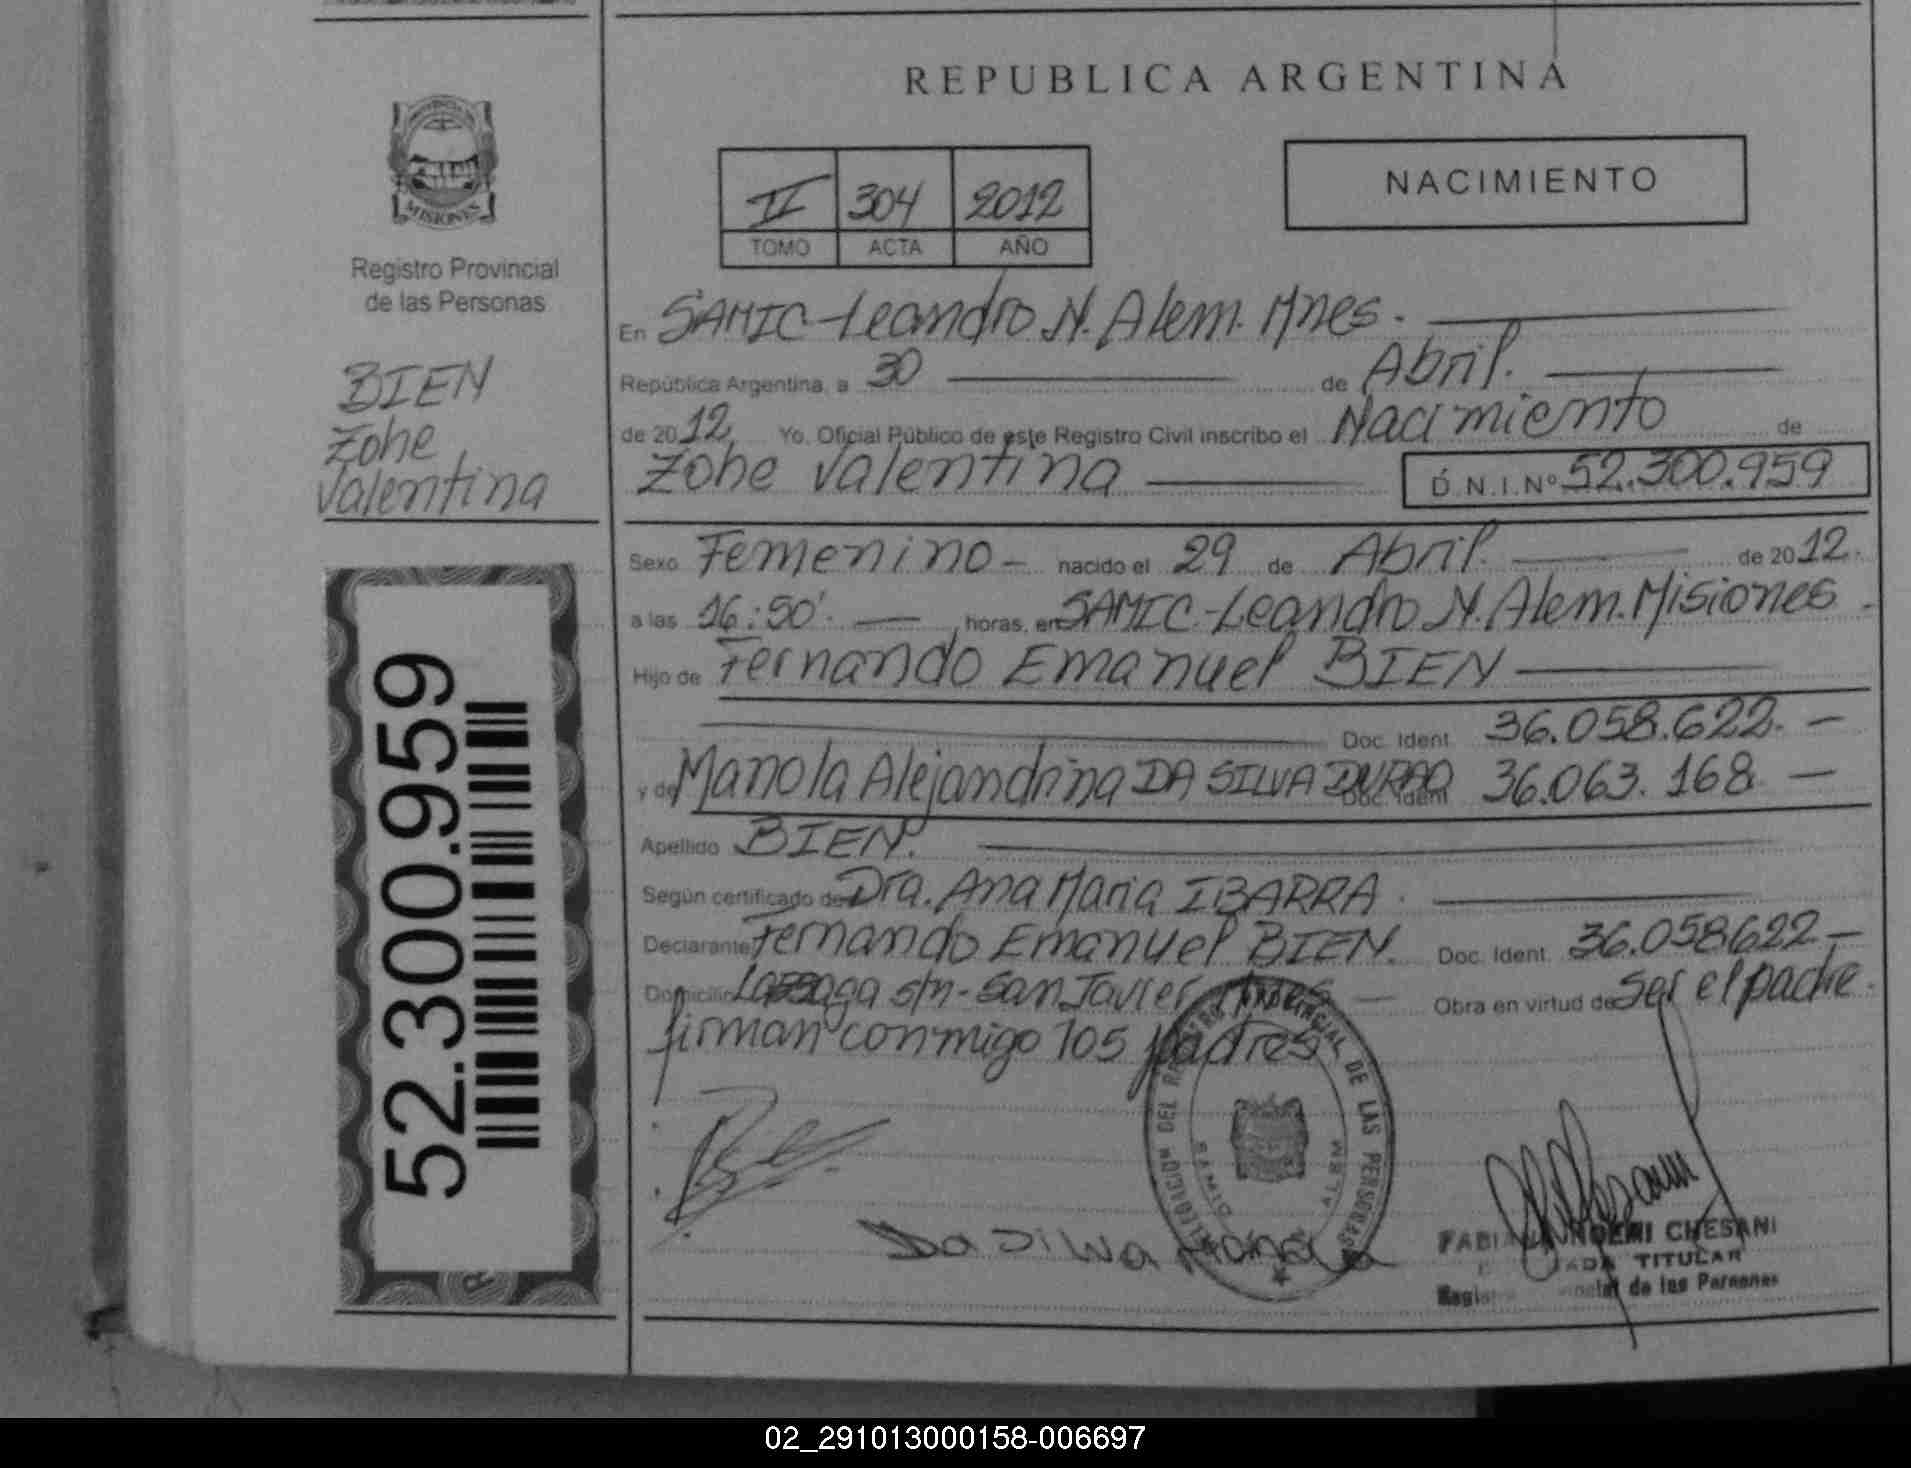 REPUBLICA ARGENTINA
MISIONES
Registro Provincial
de las Personas
BIEN
Zohe
Valentina
52.300.959
II 304 2012
TOMO ACTA AÑO
NACIMIENTO
En SAMIC-Leandro N. Alem. Mnes.
República Argentina, a 30 de Abril.
de 2012 Yo, Oficial Público de este Registro Civil inscribo el Nacimiento de
Zohe Valentina D.N.I.Nº 52.300.959
Sexo Femenino - nacido el 29 de Abril. de 2012.
a las 16:50'. horas, en SAMIC-Leandro N. Alem. Misiones
Hijo de Fernando Emanuel BIEN
Doc. Ident. 36.058.622. -
y de Manola Alejandrina DA SILVA DURAO Doc. Ident. 36.063.168 -
Apellido BIEN.
Según certificado de Dra. Ana Maria IBARRA.
Declarante Fernando Emanuel BIEN. Doc. Ident. 36.058.622.-
Domicilio s/n - San Javier Mnes - Obra en virtud de Ser el padre.
firman conmigo los padres
DELEGACION DEL REGISTRO PROVINCIAL DE LAS PERSONAS
SAMIC ALEM
Da Silva Manola
NOEMI CHESANI
TITULAR
de las Personas
02_291013000158-006697